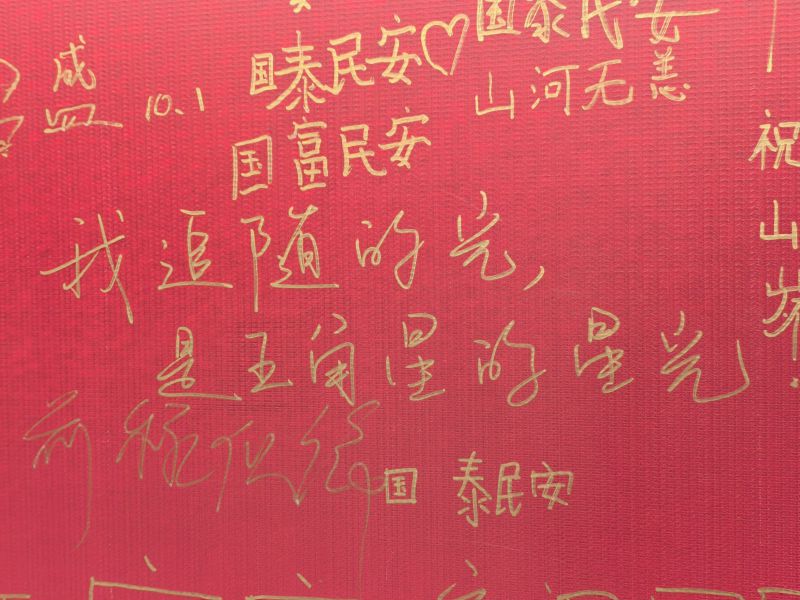 国泰民安
国泰民安♡
山河无恙
10.1
国富民安
祝
山
我追随的光，
是五角星的星光
前程似锦
国泰民安